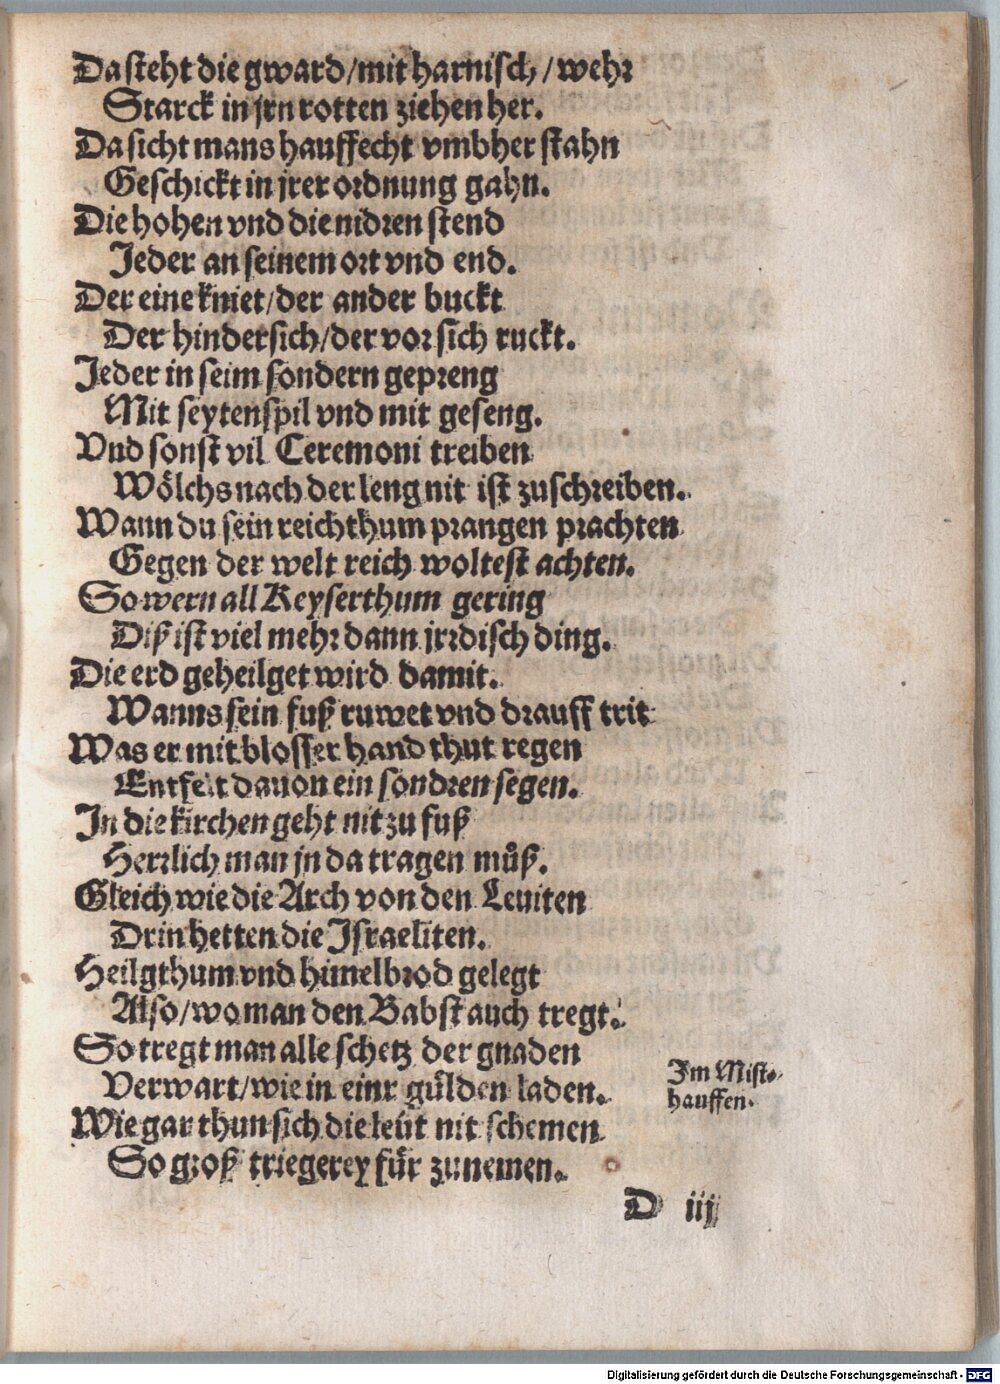 Da steht die gward / mit harnisch / wehr
Starck in jrn rotten ziehen her.
Da sicht mans hauffecht vmbher stahn
Geschickt in jrer ordnung gahn.
Die hohen vnd die nidren stend
Jeder an seinem ort vnd end.
Der eine kniet / der ander buckt
Der hindersich / der vor sich ruckt.
Jeder in seim sondern gepreng
Mit seytenspil vnd mit geseng.
Vnd sonst vil Ceremoni treiben
Wölchs nach der leng nit ist zuschreiben.
Wann du sein reichthum prangen prachten
Gegen der welt reich woltest achten.
So wern all Keyserthum gering
Diß ist viel mehr dann jrrdisch ding.
Die erd geheilget wird damit.
Wanns sein fuß ruwet vnd drauff trit
Was er mit blosser hand thut regen
Entfelt dauon ein sondren segen.
In die kirchen geht nit zu fuß
Herrlich man jn da tragen můß.
Gleich wie die Arch von den Leuiten
Drin hetten die Israeliten.
Heilgthum vnd himelbrod gelegt
Also / wo man den Babst auch tregt.
So tregt man alle schetz der gnaden
Verwart / wie in einr gülden laden.
Im Mist-
hauffen.
Wie gar thun sich die leüt nit schemen
So groß triegerey für zunemen.
D iij
Digitalisierung gefördert durch die Deutsche Forschungsgemeinschaft - DFG